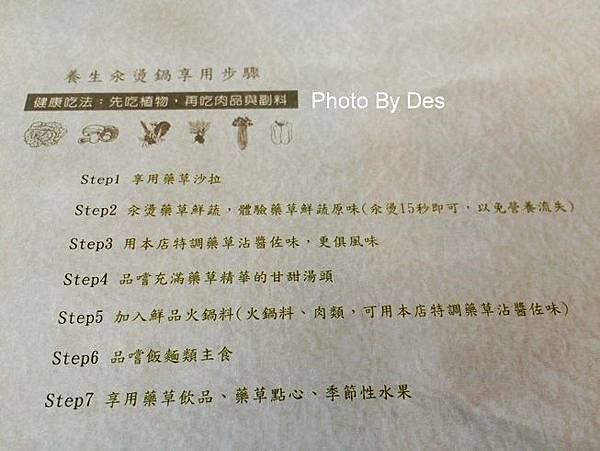 養生汆燙鍋享用步驟
健康吃法：先吃植物，再吃肉品與副料
Photo By Des
Step1 享用藥草沙拉
Step2 汆燙藥草鮮蔬，體驗藥草鮮蔬原味(汆燙15秒即可，以免營養流失)
Step3 用本店特調藥草沾醬佐味，更俱風味
Step4 品嚐充滿藥草精華的甘甜湯頭
Step5 加入鮮品火鍋料(火鍋料、肉類，可用本店特調藥草沾醬佐味)
Step6 品嚐飯麵類主食
Step7 享用藥草飲品、藥草點心、季節性水果